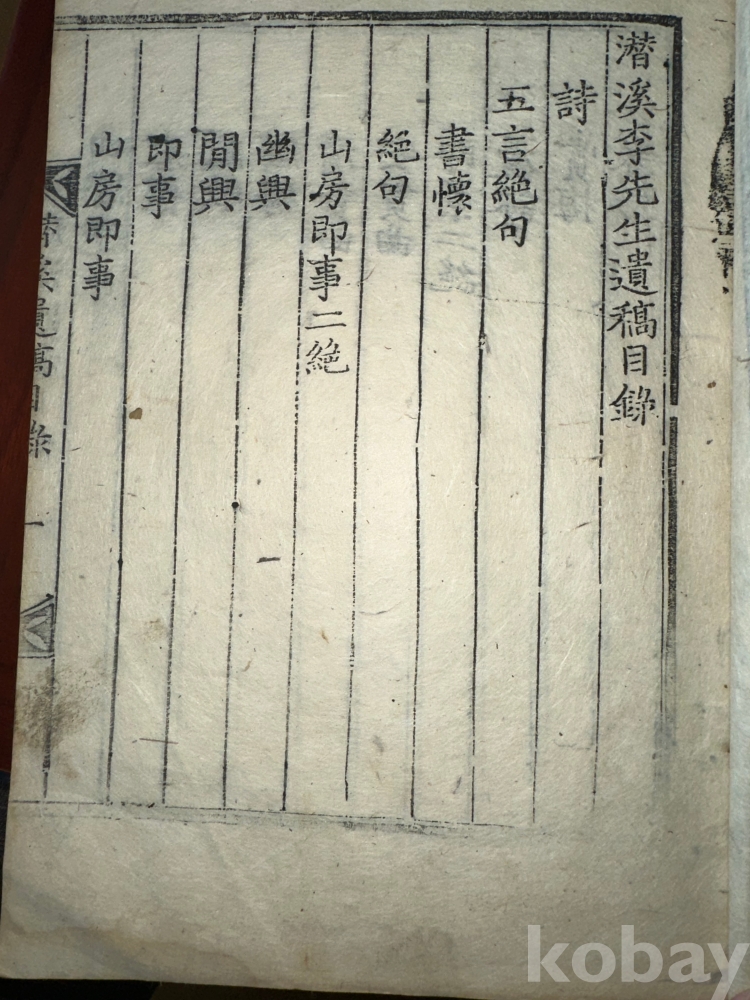 潛溪李先生遺稿目錄
詩
五言絕句
書懷
絕句
山房即事二絕
幽興
閒興
即事
山房即事
潛溪遺稿目錄 一
kobay